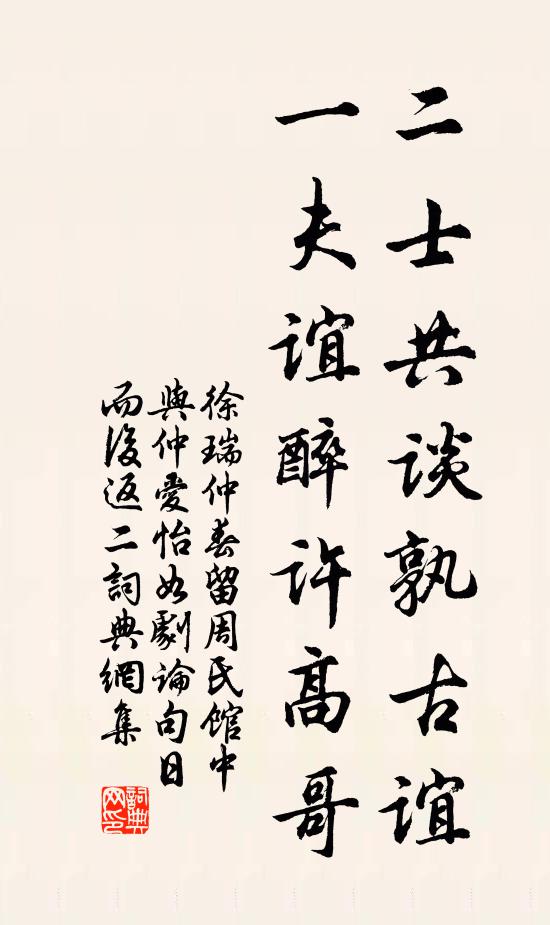 二士共谈孰古誼
一夫誼醉许高哥
徐瑞仲春留周民館中
與仲愛怡如劇論句日
而後返二詞典網集
詞典网印